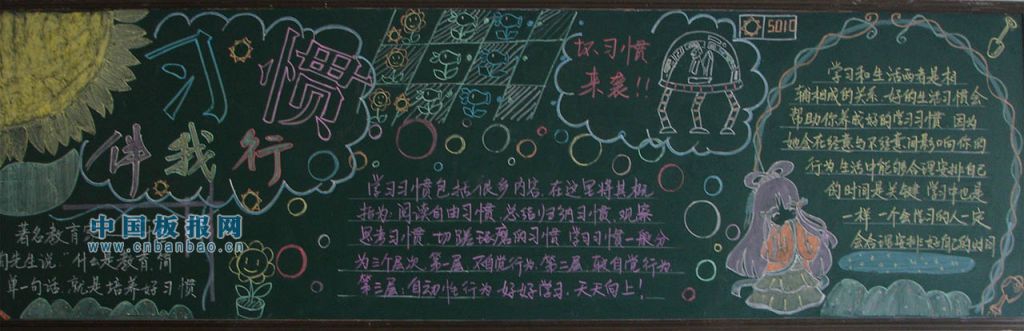 习惯
伴我行
坏习惯
来袭!!
5010
中国板报网
www.cnbanbao.cn
著名教育
陶先生说:"什么是教育,简
单一句话,就是培养好习惯
学习习惯包括很多内容,在这里将其概
括为:阅读自由习惯、总结归纳习惯、观察
思考习惯、切磋琢磨的习惯 学习习惯一般分
为三个层次 第一层:不自觉行为,第二层:取自觉行为
第三层:自动性行为 好好学习,天天向上!
学习和生活两者是相
辅相成的关系 好的生活习惯会
帮助你养成好的学习习惯 因为
她会在轻意与不经意间影响你的
行为 生活中能够合理安排自己
的时间是关键 学习中也是
一样 一个会学习的人一定
会合理安排好自己的时间